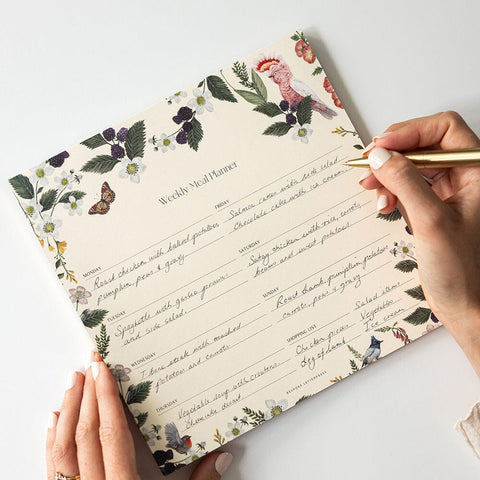 Weekly Meal Planner
MONDAY
Roast chicken with baked potatoes
pumpkin, peas & gravy
TUESDAY
Spaghetti with garlic prawns
and side salad
WEDNESDAY
T-bone steak with mashed
potatoes and carrots
THURSDAY
Vegetable soup with croutons
FRIDAY
Salmon cakes with side salad
Chocolate cake with ice cream
SATURDAY
Satay chicken with rice, carrots
beans and sweet potatoes
SUNDAY
Roast lamb pumpkin potatoes
carrots, peas & gravy
SHOPPING LIST
Chicken
Leg of lamb
Salad
Vegetables
Ice cream
BESPOKE LETTERPRESS